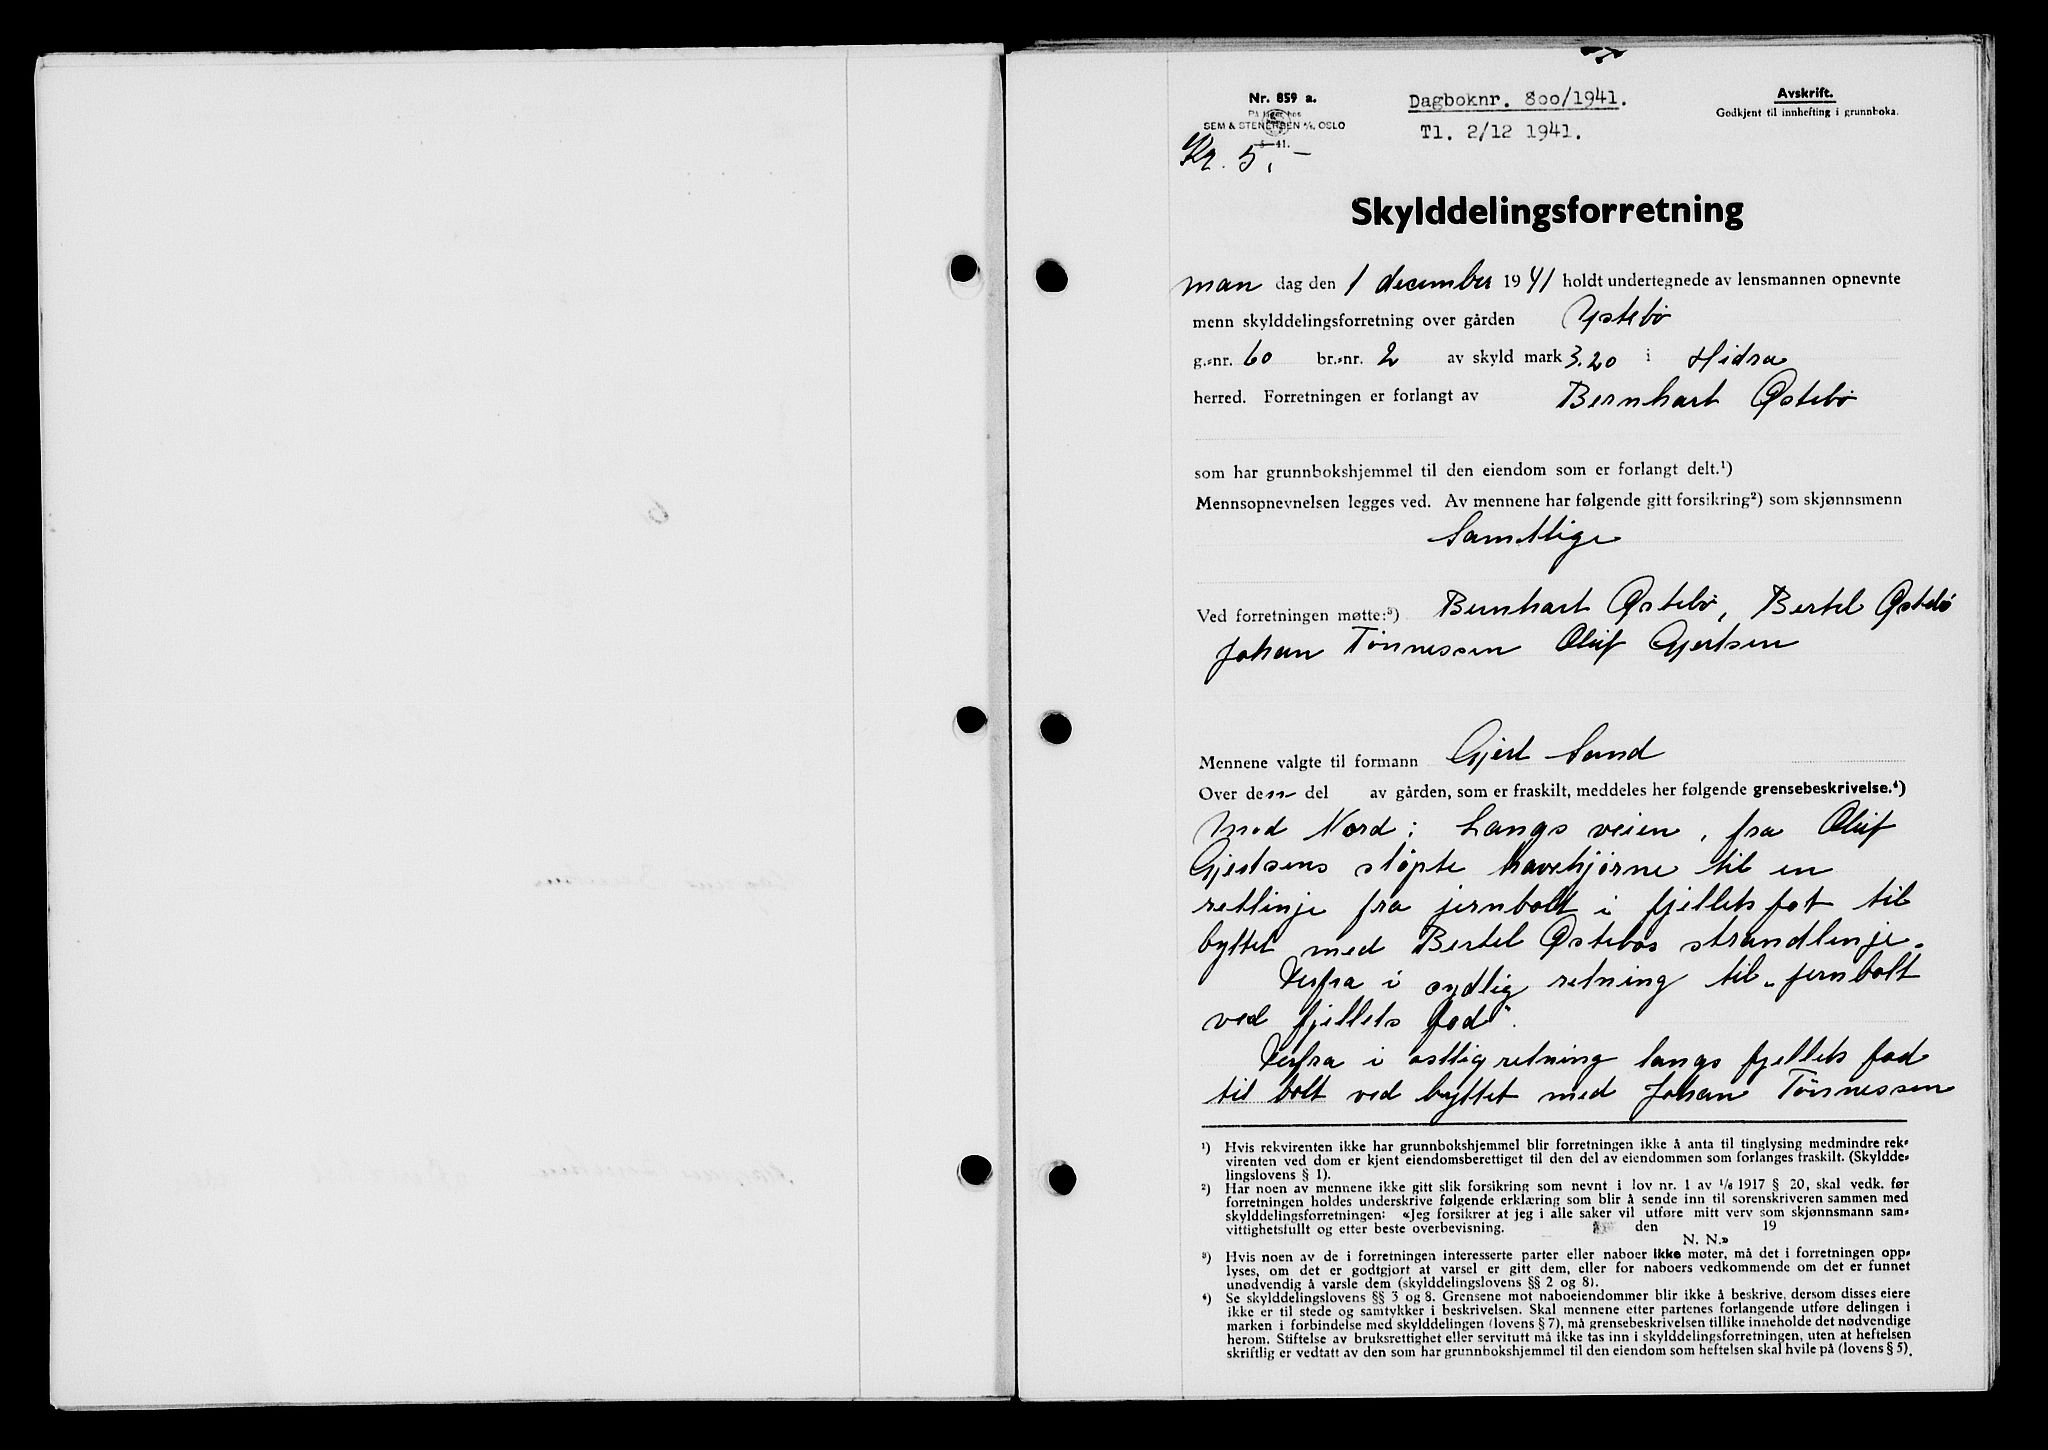 Nr. 859 a.
SEM & STENERSEN A/S, OSLO
41.
Kr. 5,-
Dagboknr. 800/1941.
Tl. 2/12 1941.
Avskrift.
Godkjent til innhefting i grunnboka.
Skylddelingsforretning
man dag den 1 december 1941 holdt undertegnede av lensmannen opnevnte
menn skylddelingsforretning over gården Ystebø
g.-nr. 60 br.-nr. 2 av skyld mark 3.20 i Hidra
herred. Forretningen er forlangt av Bernhart Østebø
som har grunnbokshjemmel til den eiendom som er forlangt delt.¹)
Mennsopnevnelsen legges ved. Av mennene har følgende gitt forsikring²) som skjønnsmenn
Samtlige
Ved forretningen møtte:³) Bernhart Østebø, Bertel Østebø
Johan Tønnessen Oluf Gjertsen
Mennene valgte til formann Gjert Sand
Over den del av gården, som er fraskilt, meddeles her følgende grensebeskrivelse.⁴)
Mod Nord: Langs veien, fra Oluf
Gjertsens støpte havehjørne til en
retlinje fra jernbolt i fjellets fot til
byttet med Bertel Østebøs strandlinje.
Derfra i sydlig retning til „jernbolt
ved fjellets fod".
Derfra i østlig retning langs fjellets fod
til bolt ved byttet med Johan Tønnessen
¹) Hvis rekvirenten ikke har grunnbokshjemmel blir forretningen ikke å anta til tinglysing medmindre rek-
virenten ved dom er kjent eiendomsberettiget til den del av eiendommen som forlanges fraskilt. (Skyldde-
lingslovens § 1).
²) Har noen av mennene ikke gitt slik forsikring som nevnt i lov nr. 1 av 1/6 1917 § 20, skal vedk. før
forretningen holdes underskrive følgende erklæring som blir å sende inn til sorenskriveren sammen med
skylddelingsforretningen: «Jeg forsikrer at jeg i alle saker vil utføre mitt verv som skjønnsmann sam-
vittighetsfullt og etter beste overbevisning. den 19
N. N.»
³) Hvis noen av de i forretningen interesserte parter eller naboer ikke møter, må det i forretningen opp-
lyses, om det er godtgjort at varsel er gitt dem, eller for naboers vedkommende om det er funnet
unødvendig å varsle dem (skylddelingslovens §§ 2 og 8).
⁴) Se skylddelingslovens §§ 3 og 8. Grensene mot naboeiendommer blir ikke å beskrive, dersom disses eiere
ikke er til stede og samtykker i beskrivelsen. Skal mennene etter partenes forlangende utføre delingen i
marken i forbindelse med skylddelingen (lovens § 7), må grensebeskrivelsen tillike inneholde det nødvendige
herom. Stiftelse av bruksrettighet eller servitutt må ikke tas inn i skylddelingsforretningen, uten at heftelsen
skriftlig er vedtatt av den som har grunnbokshjemmel til den eiendom som heftelsen skal hvile på (lovens § 5).